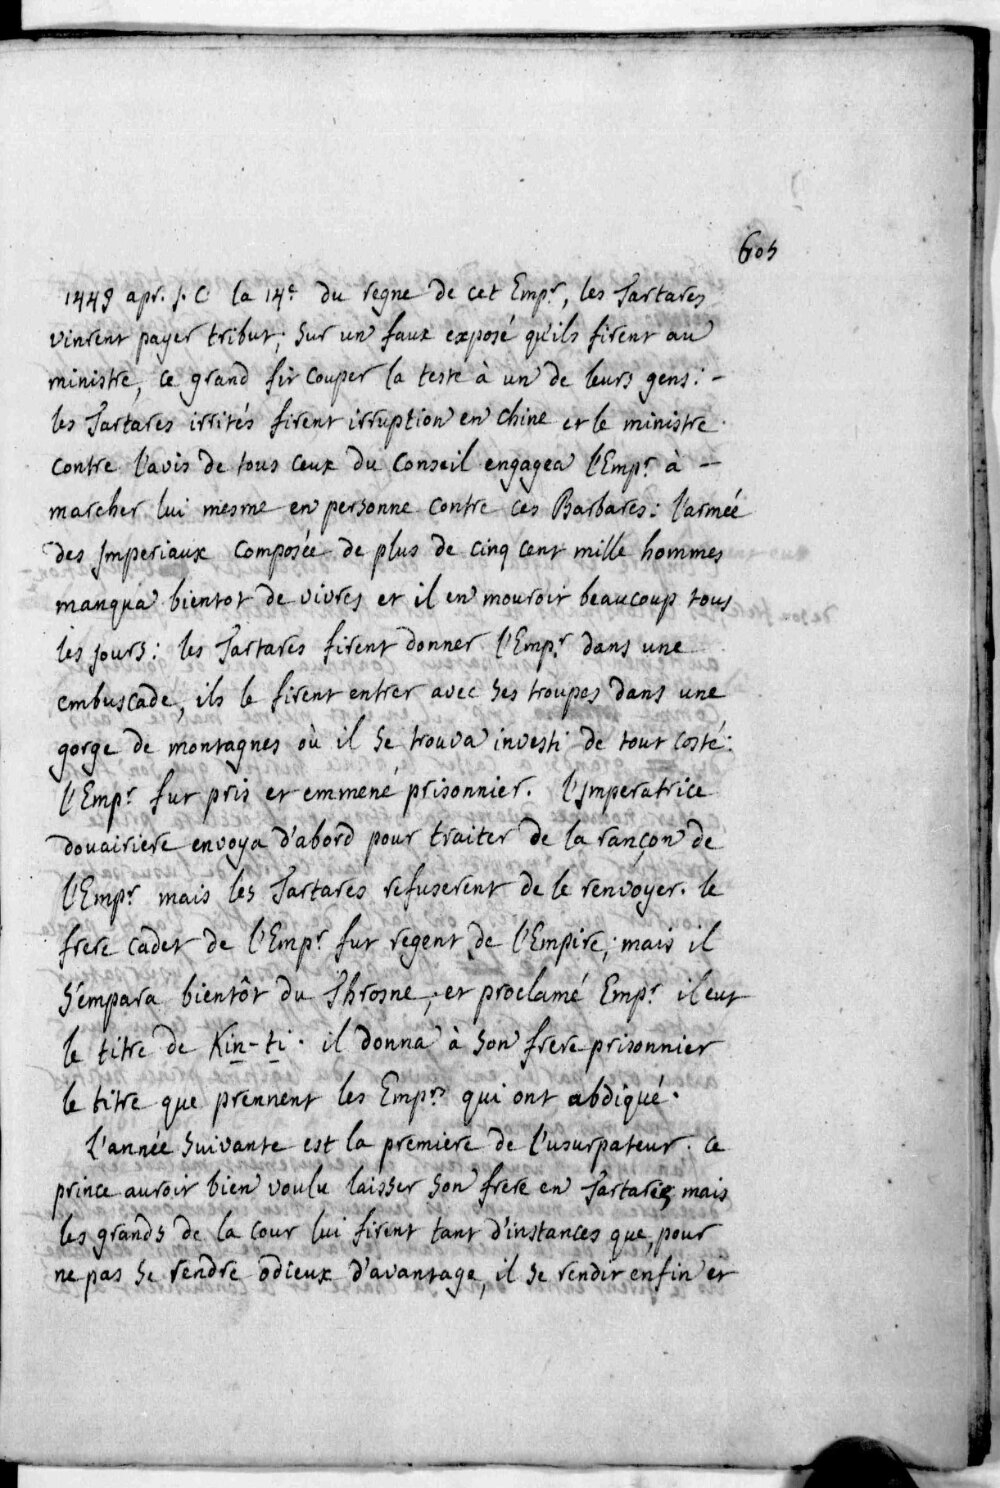 605
1449 apr. J. C la 14e du regne de cet Empr, les Tartares
vinrent payer tribut; sur un faux exposé qu'ils firent au
ministre, ce grand fit couper la teste à un de leurs gens: -
les Tartares irrités firent irruption en Chine et le ministre
contre l'avis de tous ceux du Conseil engagea l'Empr à -
marcher lui mesme en personne contre ces Barbares: l'armée
des Imperiaux composée de plus de cinq cent mille hommes
manqua bientot de vivres et il en mouroit beaucoup tous
les jours: les Tartares firent donner l'Empr dans une
embuscade, ils le firent entrer avec ses troupes dans une
gorge de montagnes où il se trouva investi de tout costé:
l'Empr fut pris et emmené prisonnier. l'Imperatrice
douairiere envoya d'abord pour traiter de la rançon de
l'Empr mais les Tartares refuserent de le renvoyer. le
frere cadet de l'Empr fut regent de l'Empire; mais il
s'empara bientôt du Throsne, et proclamé Empr il eut
le titre de Kin-ti. il donna à son frere prisonnier
le titre que prennent les Emprs qui ont abdiqué.
L'année suivante est la premiere de l'usurpateur. ce
prince auroit bien voulu laisser son frere en Tartarie, mais
les grands de la cour lui firent tant d'instances que, pour
ne pas se rendre odieux d'avantage, il se rendit enfin et